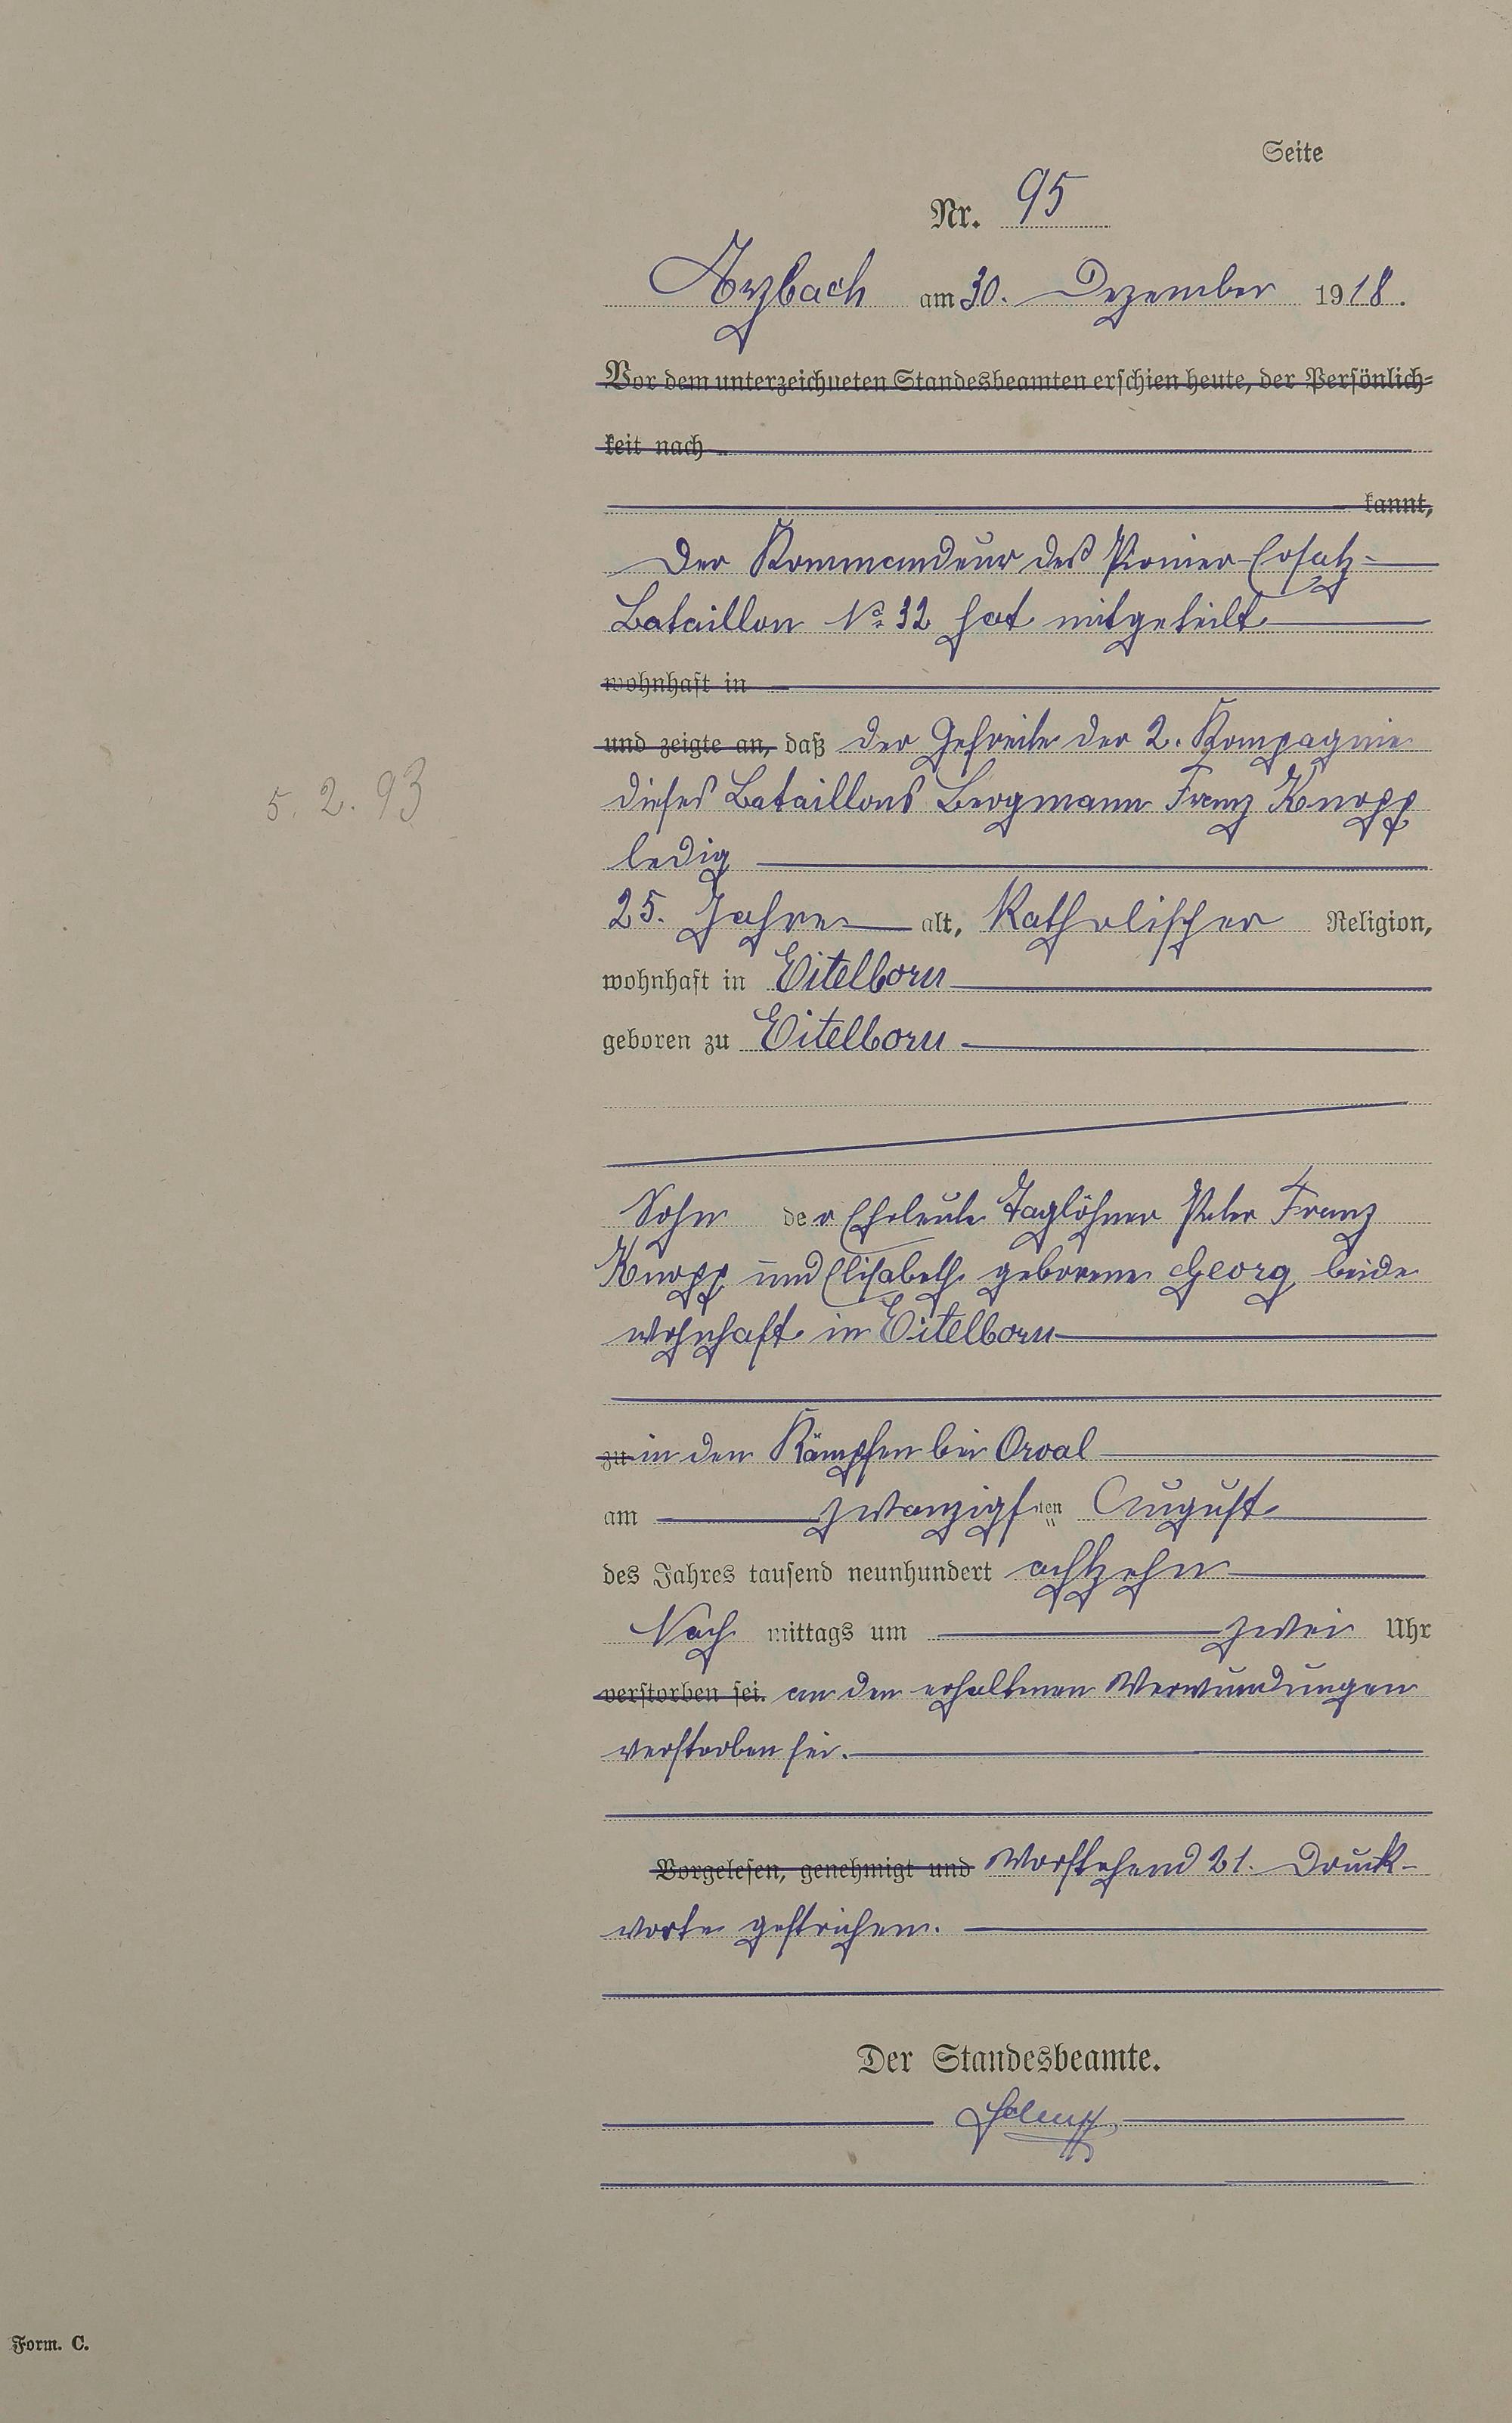 Seite
Nr. 95
Arzbach am 30. Dezember 1918.
Vor dem unterzeichneten Standesbeamten erschien heute, der Persönlich-
keit nach
kannt,
Der Kommandeur des Pionier-Ersatz-
Bataillon No 32 hat mitgeteilt
wohnhaft in
und zeigte an, daß der Gefreite der 2. Kompagnie
5. 2. 93
dieses Bataillons Bergmann Franz Knopp
ledig
25. Jahre alt, Katholischer Religion,
wohnhaft in Eitelborn
geboren zu Eitelborn
Sohn der Eheleute Taglöhner Peter Franz
Knopp und Elisabeth geborene Georg beide
wohnhaft in Eitelborn
zu in den Kämpfen bei Orval
am zwanzigsten August
des Jahres tausend neunhundert achtzehn
Nach mittags um zwei Uhr
verstorben sei. an den erhaltenen Verwundungen
verstorben sei.
Vorgelesen, genehmigt und Vorstehend 21. Druck-
worte gestrichen.
Der Standesbeamte.
Form. C.